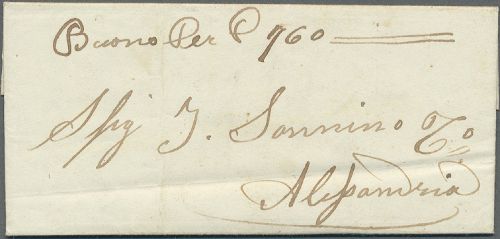 Buono Per P 960
Spig J. Sonnino & Co
Alessandria